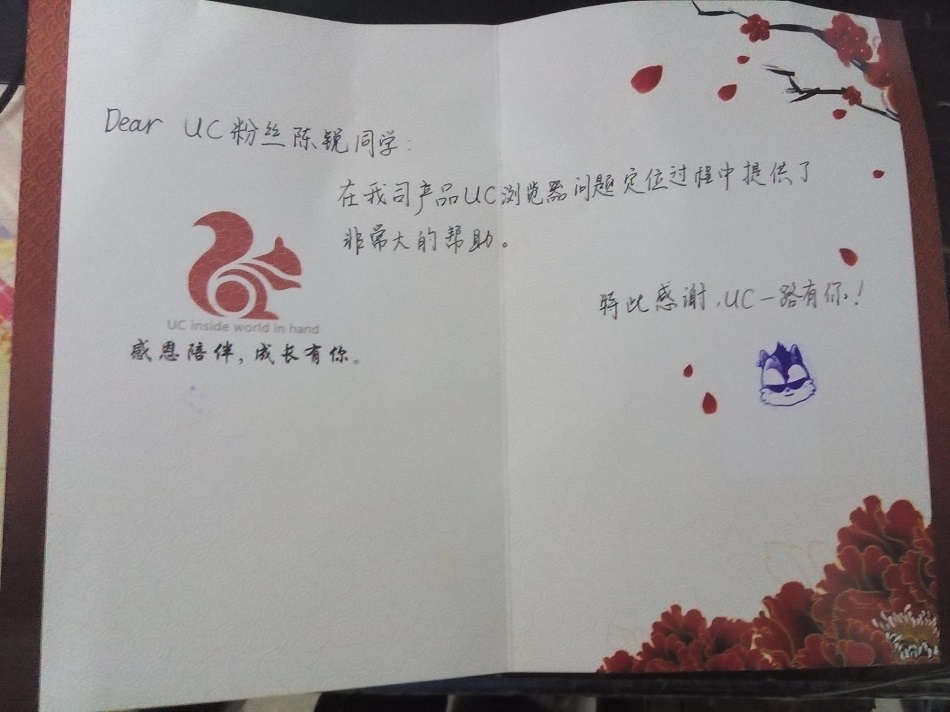 Dear UC粉丝陈锐同学:
在我司产品UC浏览器问题定位过程中提供了
非常大的帮助。
特此感谢,UC一路有你!
UC inside world in hand
感恩陪伴,成长有你。